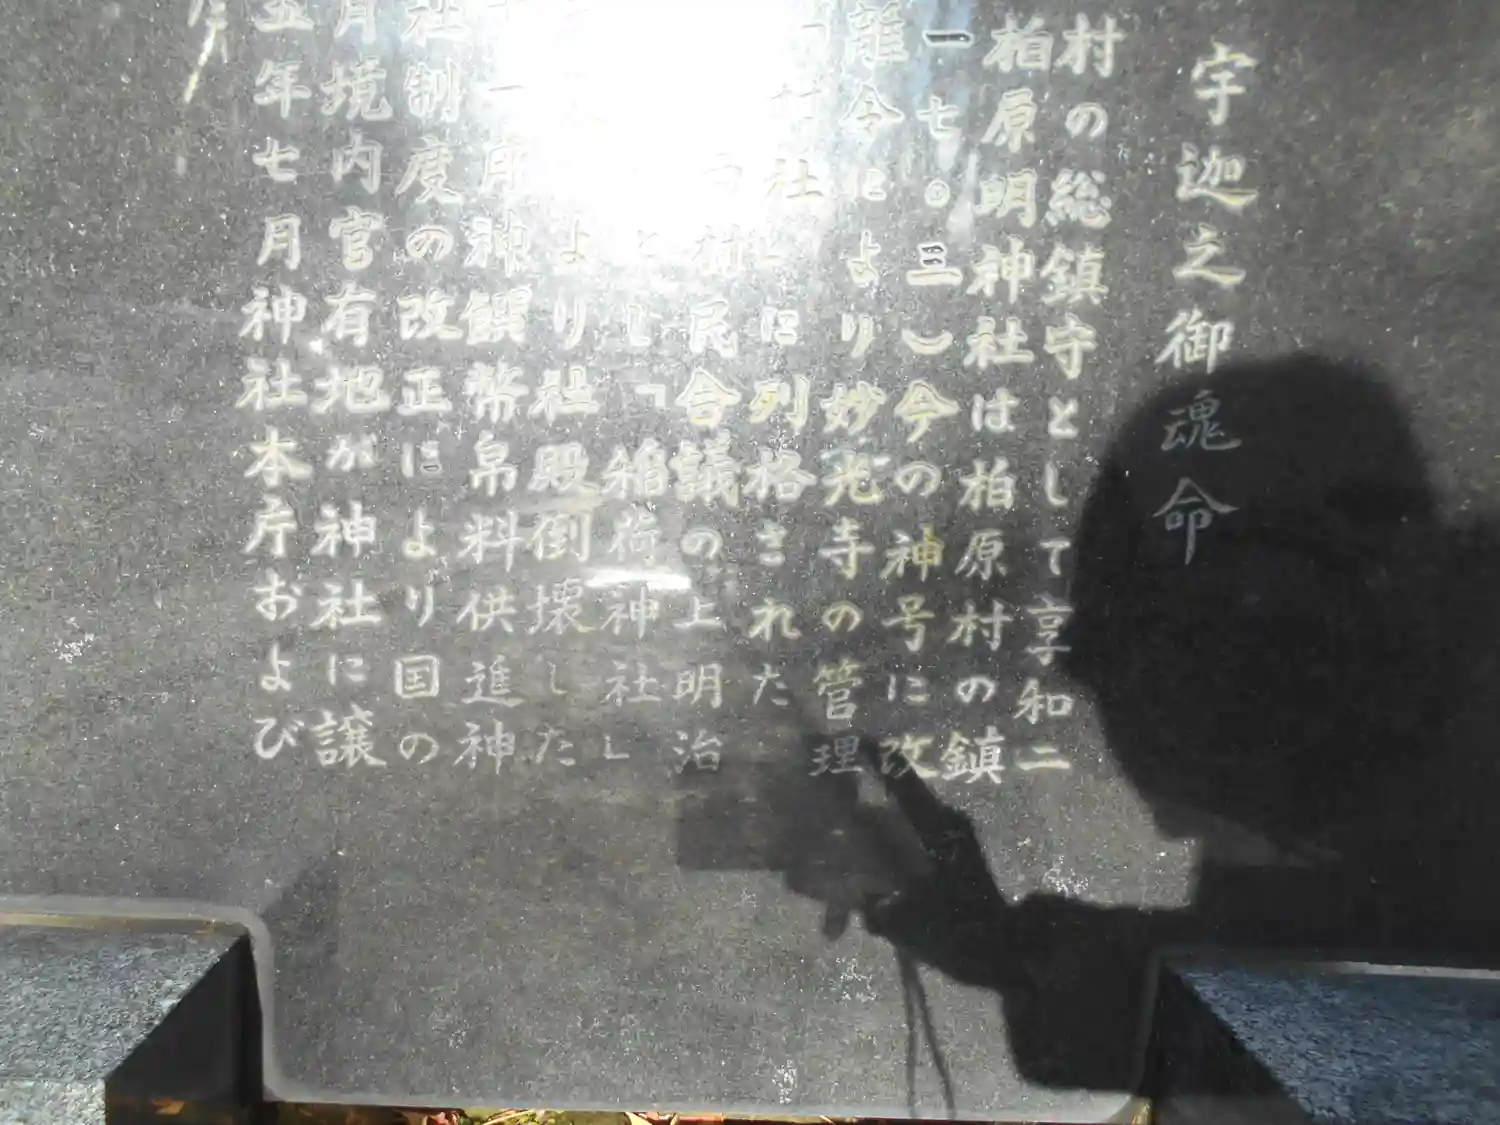 宇迦之御魂命
村の総鎮守として享和二
柏原明神社は柏原村の鎮
一七〇三)今の神号に改
離令により妙光寺の管理
村社」に列格された
村民合議の上明治
とし「稲荷神社」
より社殿倒壊した
一月神饌幣帛料供進神
社制度の改正により国の
月境内官有地が神社に譲
五年七月神社本庁および